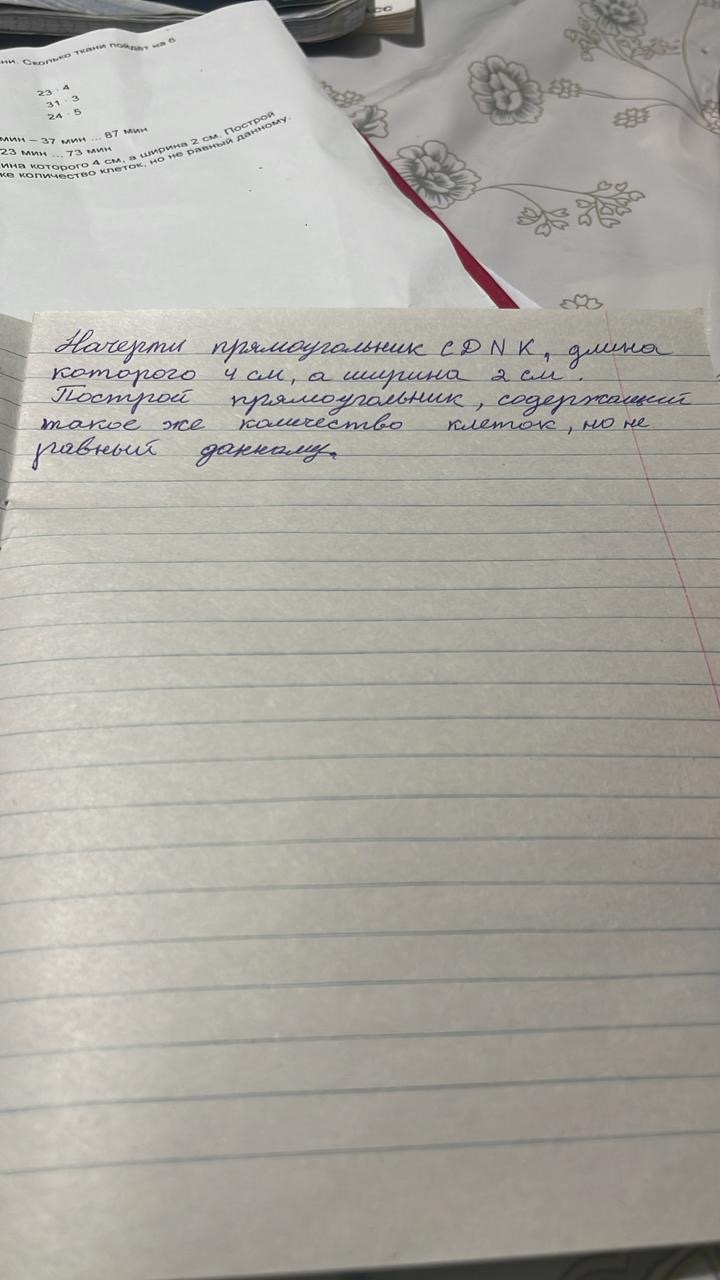 сс
ни. Сколько ткани пойдёт на 6
23 · 4
31 · 3
24 · 5
мин – 37 мин ... 87 мин
23 мин ... 73 мин
ина которого 4 см, а ширина 2 см. Построй
ке количество клеток, но не равный данному.
Начерти прямоугольник CDNK, длина
которого 4 см, а ширина 2 см.
Построй прямоугольник, содержащий
такое же количество клеток, но не
равный данному.